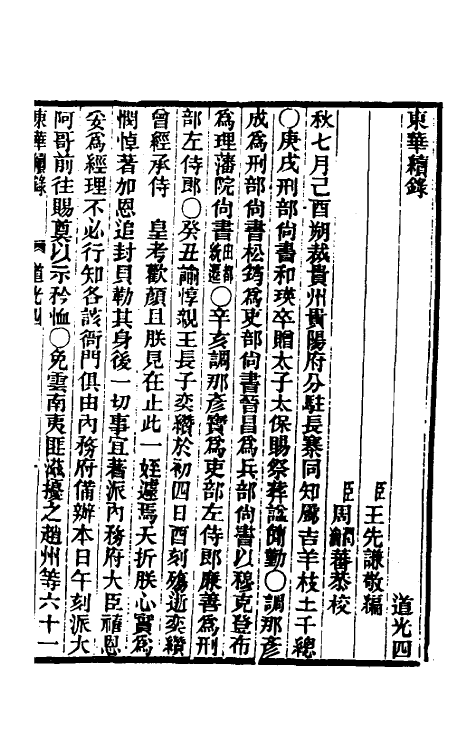 東華續錄
道光四
臣王先謙敬編
臣周瀹蕃恭校
秋七月己酉朔裁貴州貴陽府分駐長寨同知屬吉羊枝土千總
○庚戌刑部尙書和瑛卒贈太子太保賜祭葬諡簡勤○調那彥
成爲刑部尙書松筠爲吏部尙書晉昌爲兵部尙書以穆克登布
爲理藩院尙書由都統遷○辛亥調那彥寶爲吏部左侍郎廉善爲刑
部左侍郎○癸丑諭惇親王長子奕纘於初四日酉刻殤逝奕纘
曾經承侍 皇考歡顏且朕見在止此一姪遽焉夭折朕心實爲
憫悼著加恩追封貝勒其身後一切事宜著派內務府大臣禧恩
妥爲經理不必行知各該衙門俱由內務府備辦本日午刻派大
阿哥前往賜奠以示矜恤○免雲南夷匪滋擾之趙州等六十一
東華續錄 道光四